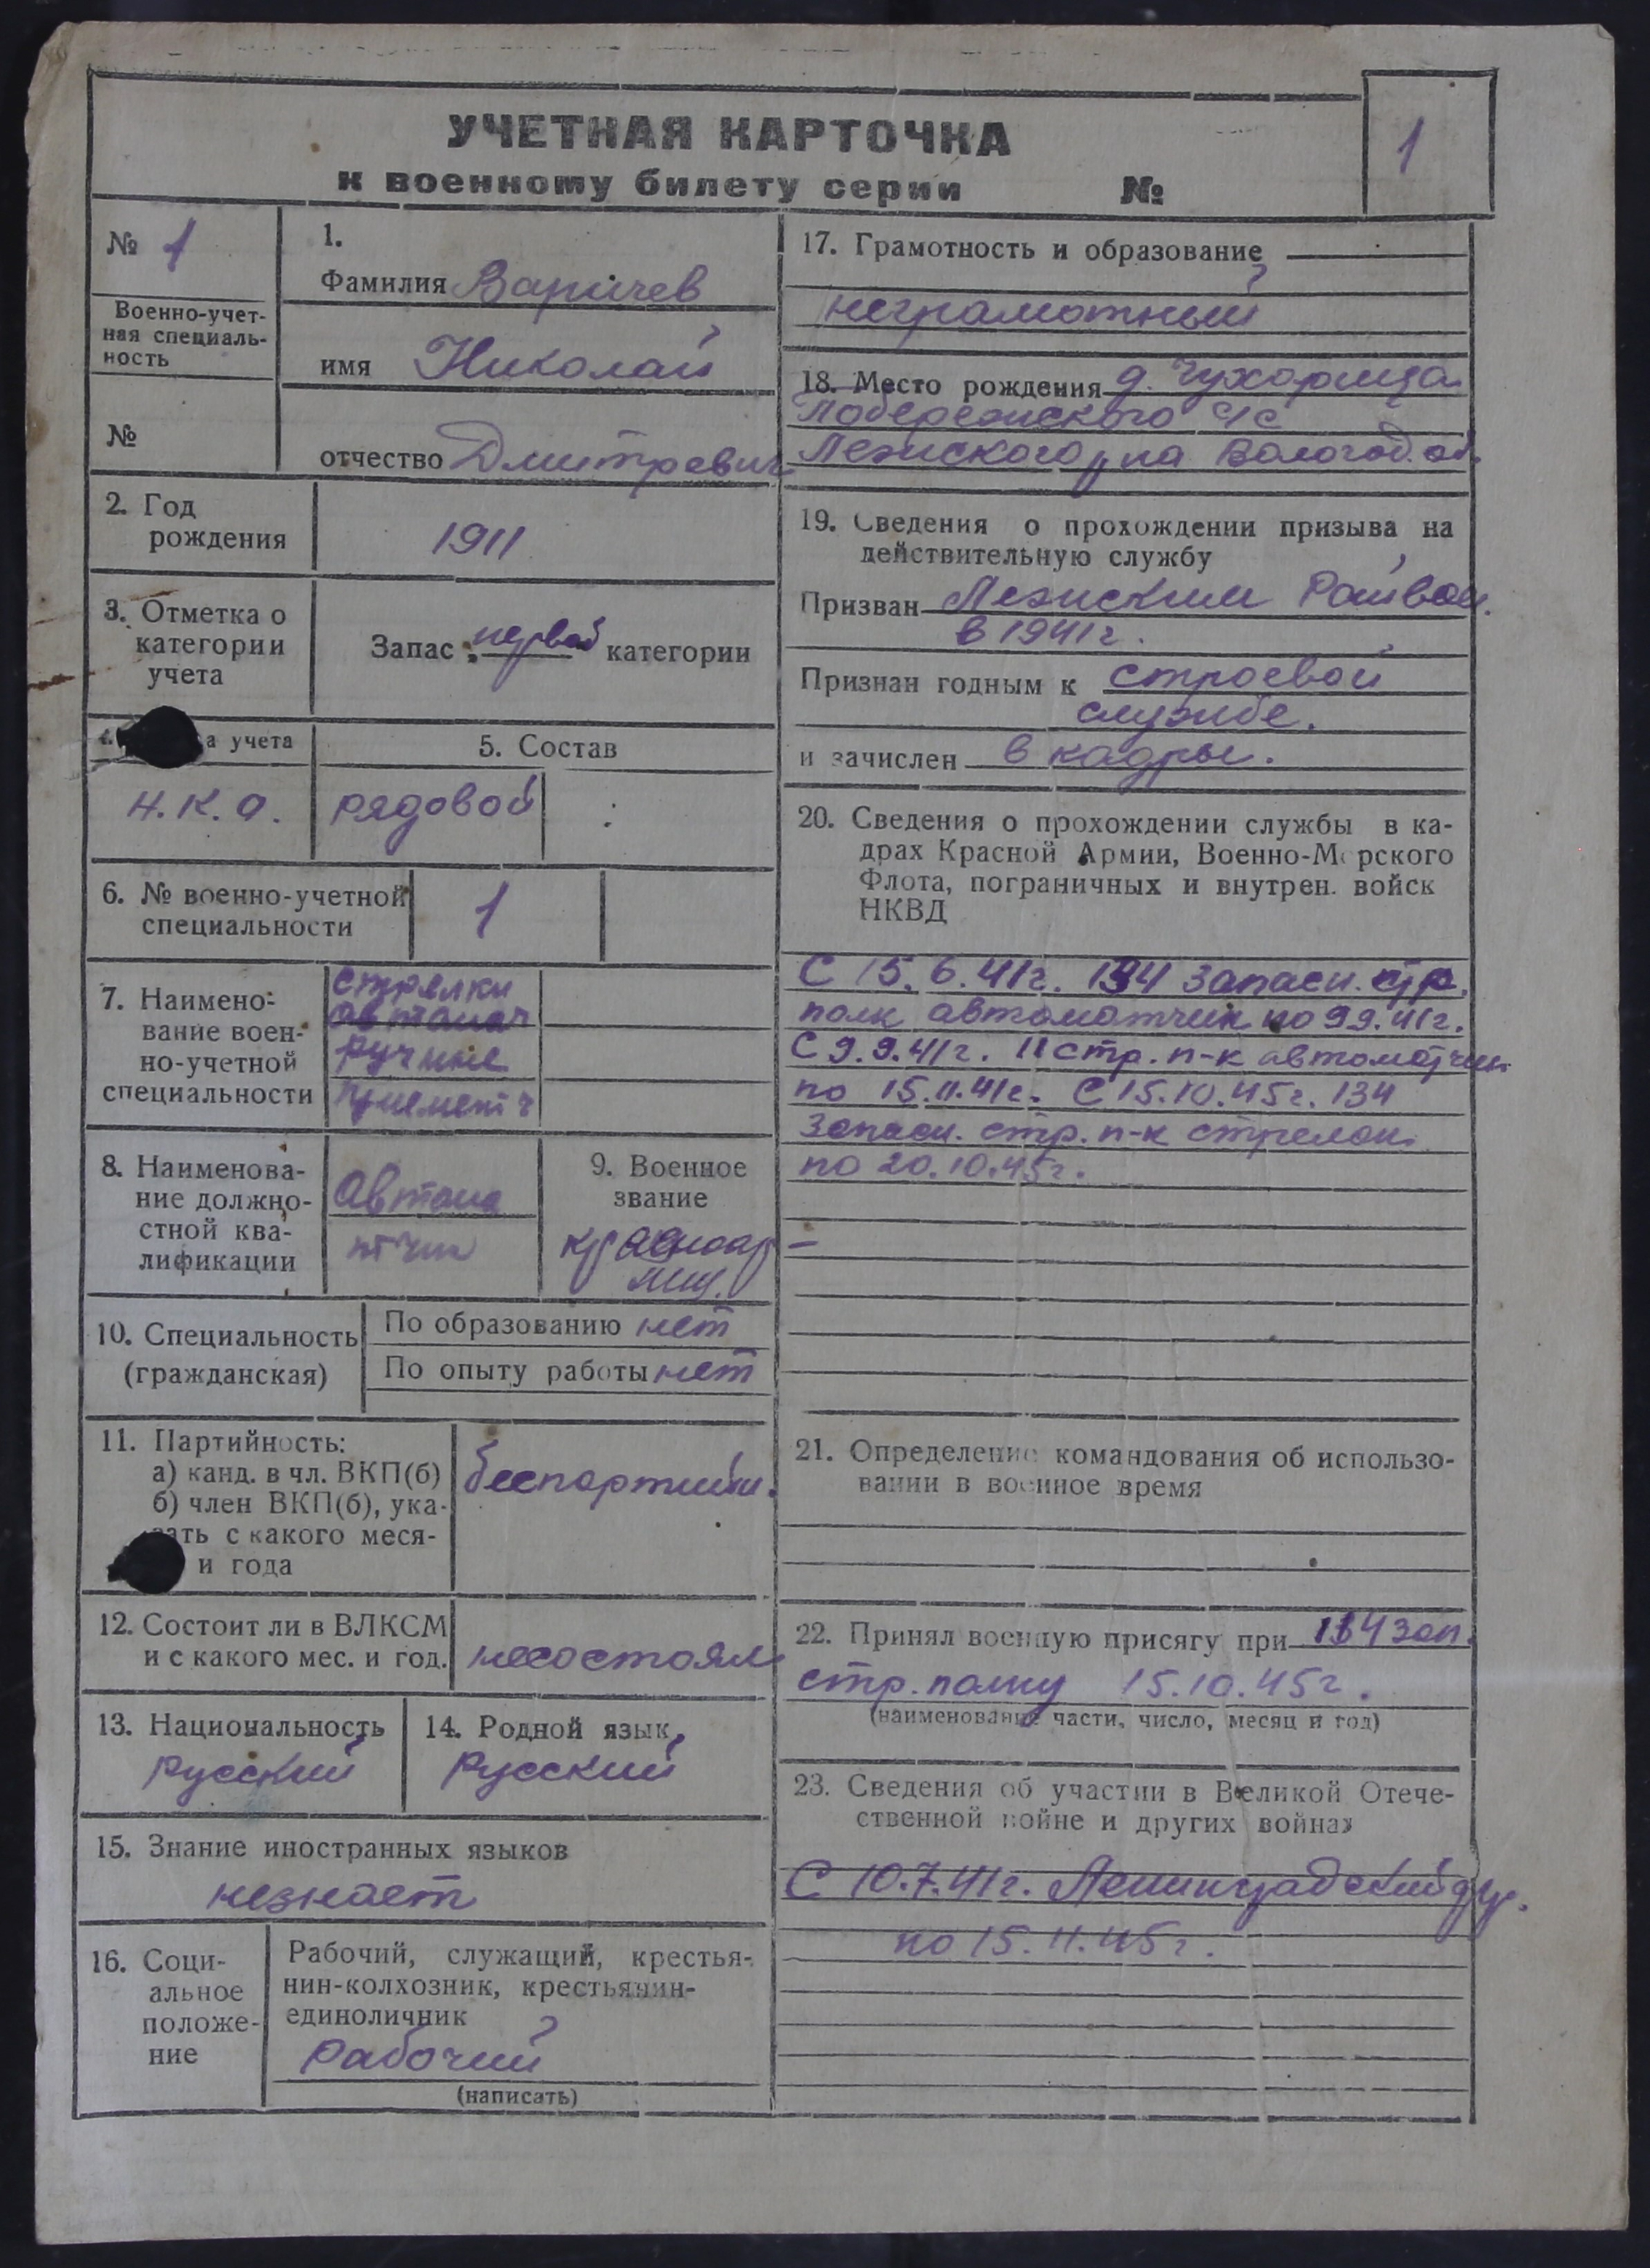 УЧЕТНАЯ КАРТОЧКА
к военному билету серии №
1
№ 1
Военно-учет-
ная специаль-
ность
№
1.
Фамилия Варичев
имя Николай
отчество Дмитревич
2. Год
рождения
1911
3. Отметка о
категории
учета
Запас первой категории
а учета
Н.К.О.
5. Состав
рядовой
6. № военно-учетной
специальности
1
7. Наимено-
вание воен-
но-учетной
специальности
стрелки
автомат
ручные
8. Наименова-
ние должно-
стной ква-
лификации
Автома
тчик
9. Военное
звание
красноар-
мец.
10. Специальность
(гражданская)
По образованию нет
По опыту работы нет
11. Партийность:
а) канд. в чл. ВКП(б)
б) член ВКП(б), ука-
зать с какого меся-
и года
беспартийн.
12. Состоит ли в ВЛКСМ
и с какого мес. и год.
несостоял
13. Национальность
русский
14. Родной язык
русский
15. Знание иностранных языков
незнает
16. Соци-
альное
положе-
ние
Рабочий, служащий, крестья-
нин-колхозник, крестьянин-
единоличник
Рабочий
(написать)
17. Грамотность и образование
неграмотный
18. Место рождения д. Чухарица
Побережского с/с
Лежского р-на Вологод. об.
19. Сведения о прохождении призыва на
действительную службу
Призван Лежским Райвоен.
в 1941г.
Признан годным к строевой
службе.
и зачислен в кадры.
20. Сведения о прохождении службы в ка-
драх Красной Армии, Военно-Морского
Флота, пограничных и внутрен. войск
НКВД
С 15.6.41г. 134 Запасн. стр.
полк автоматчик по 9 9.41г.
С 9.9.41г. 11 стр. п-к автоматчик
по 15.11.41г. С 15.10.45г. 134
Запасн. стр. п-к стрелок
по 20.10.45г.
21. Определение командования об использо-
вании в военное время
22. Принял военную присягу при 134 зап.
стр. полку 15.10.45г.
(наименование части, число, месяц и год)
23. Сведения об участии в Великой Отече-
ственной войне и других войнах
С 10.7.41г. Ленинградский фр.
по 15.11.45г.